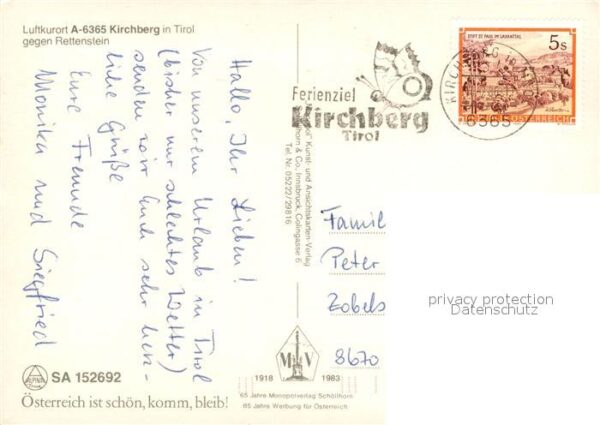 Luftkurort A-6365 Kirchberg in Tirol
gegen Rettenstein
Hallo, Ihr Lieben!
Von unserem Urlaub in Tirol
(bisher nur schlechtes Wetter)
senden wir Euch sehr herz-
liche Grüße
Eure Freunde
Monika und Siegfried
SA 152692
Österreich ist schön, komm, bleib!
Ferienziel
Kirchberg
Tirol
Kunst- und Ansichtskarten-Verlag
& Co., Innsbruck, Colingasse 6
Tel. Nr. 05222/29816
MV
1918 1983
65 Jahre Monopolverlag Schöllhorn
65 Jahre Werbung für Österreich
STIFT ST. PAUL IM LAVANTTAL
5s
ÖSTERREICH
6365
Famil
Peter
Zobels
8670
privacy protection
Datenschutz